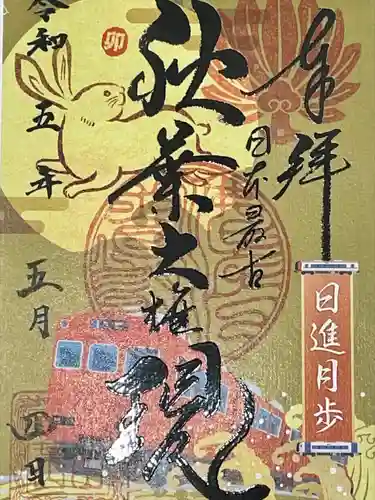 奉拝
日進月歩
日本最古
秋葉大権現
卯
令和五年
五月
四日